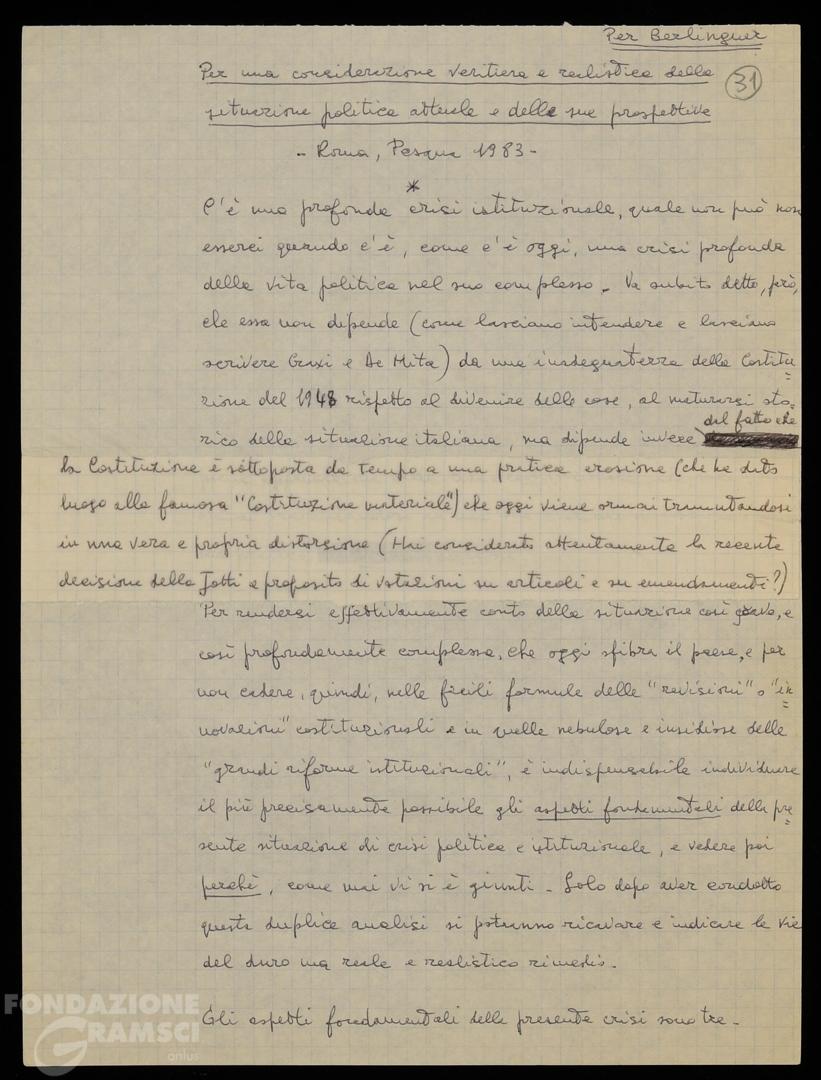 Per Berlinguer
Per una considerazione veritiera e realistica della
31
situazione politica attuale e delle sue prospettive
- Roma, Pasqua 1983 -
*
C'è una profonda crisi istituzionale, quale non può non
esserci quando c'è, come c'è oggi, una crisi profonda
della vita politica nel suo complesso. Va subito detto, però,
che essa non dipende (come lasciano intendere e lasciano
scrivere Craxi e De Mita) da una inadeguatezza della Costitu=
zione del 1948 rispetto al divenire delle cose, al maturarsi sto=
rico della situazione italiana, ma dipende invece del fatto che
la Costituzione è sottoposta da tempo a una pratica erosione (che ha dato
luogo alla famosa "Costituzione materiale") che oggi viene ormai tramutandosi
in una vera e propria distorsione (Hai considerato attentamente la recente
decisione della Jotti a proposito di votazioni su articoli e su emendamenti?)
Per rendersi effettivamente conto della situazione così grave, e
così profondamente complessa, che oggi sfibra il paese, e per
non cadere, quindi, nelle facili formule delle "revisioni" o "in=
novazioni" costituzionali e in quelle nebulose e insidiose delle
"grandi riforme istituzionali", è indispensabile individuare
il più precisamente possibile gli aspetti fondamentali della pre=
sente situazione di crisi politica e istituzionale, e vedere poi
perché, come mai vi si è giunti. Solo dopo aver condotto
questa duplice analisi si potranno ricavare e indicare le vie
del duro ma reale e realistico rimedio.
Gli aspetti fondamentali della presente crisi sono tre.
FONDAZIONE
GRAMSCI
onlus